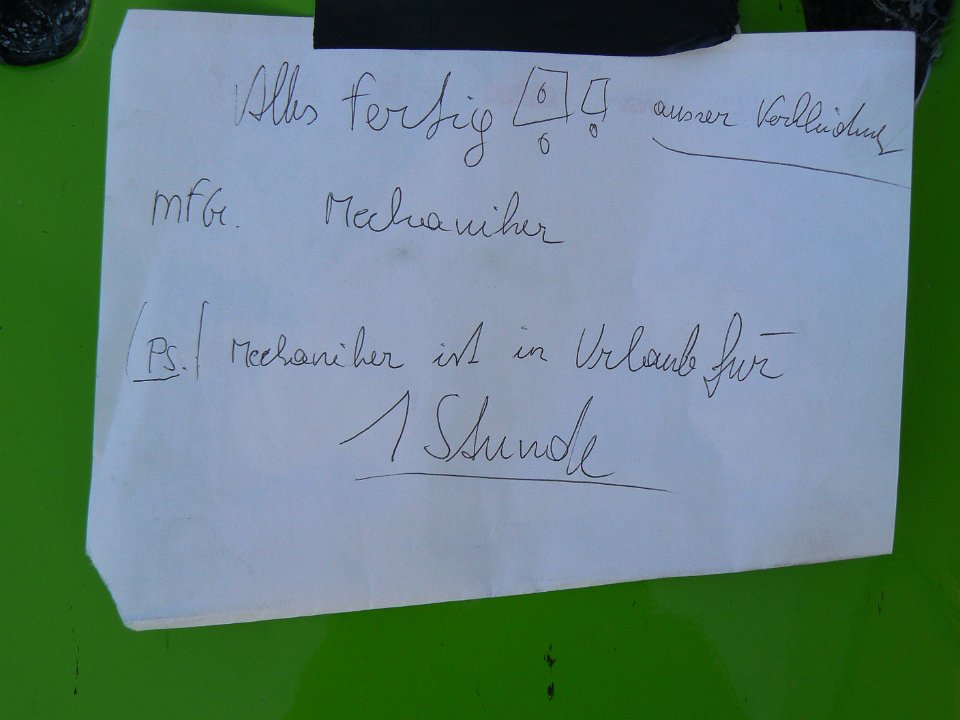 Alles fertig 6 ausser Verkleidung
MFG. Mechaniker
(Ps.) Mechaniker ist in Urlaub für
1 Stunde